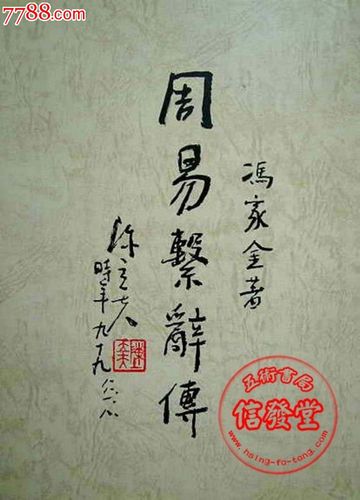 7788.com
馮家金著
周易繫辭傳
陳立夫
時年九十九
五術書局
信發堂
www.hsing-fa-tong.com